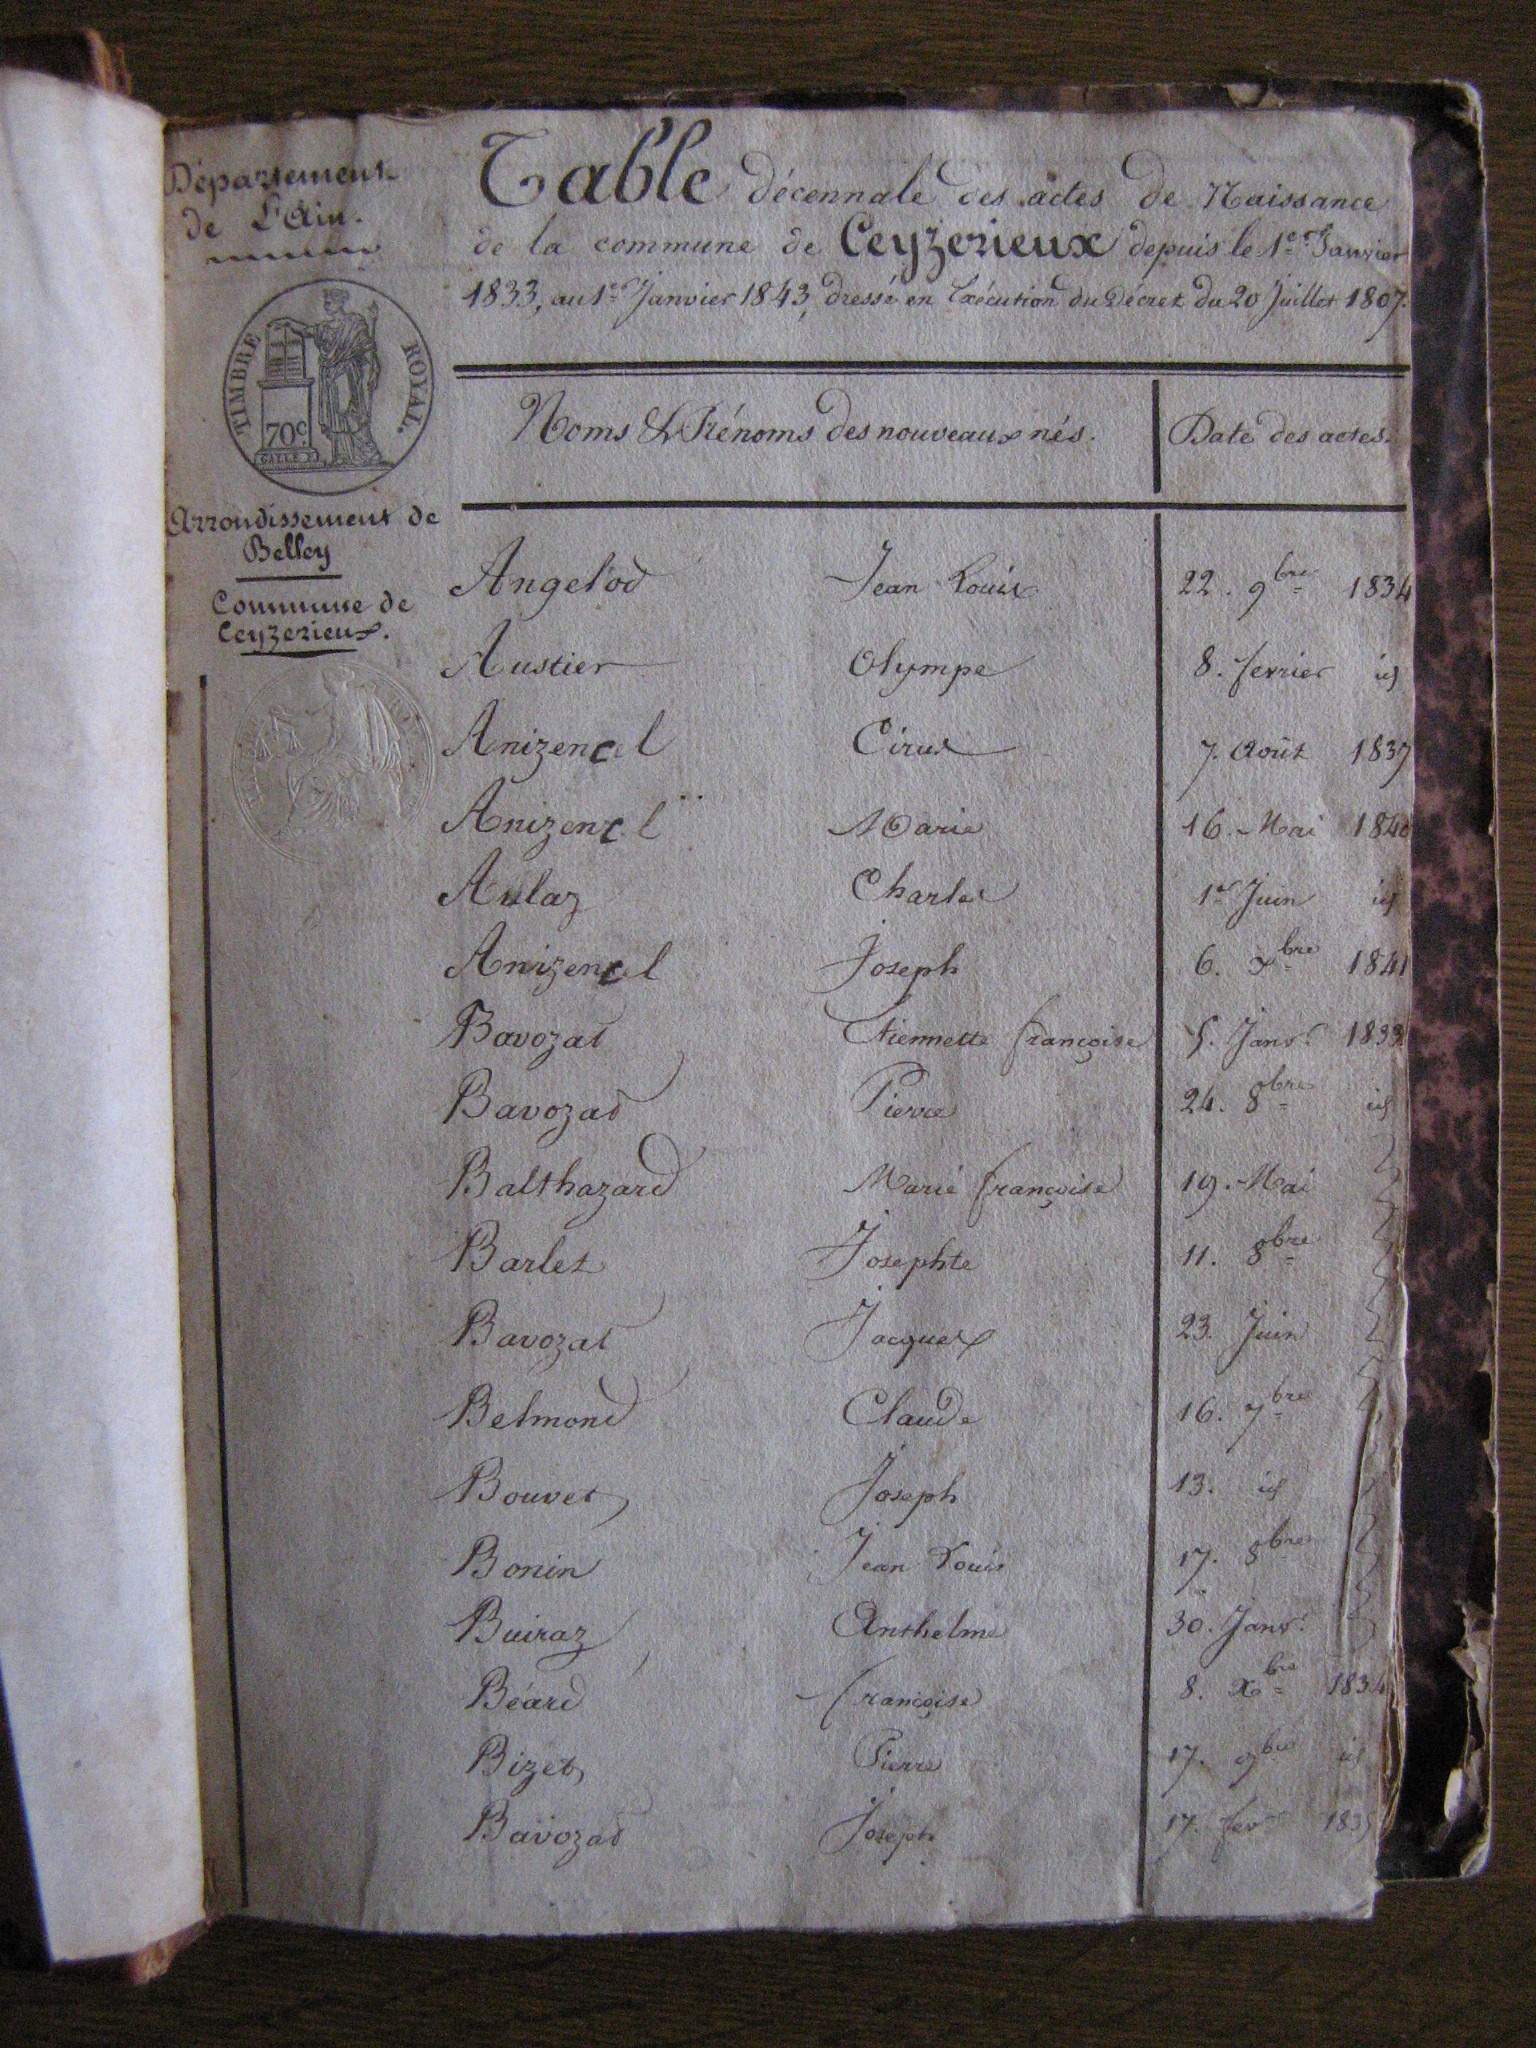 Département
de L'Ain.
TIMBRE ROYAL.
70c
Arrondissement de
Belley
Commune de
Ceyzerieux.
Table décennale des actes de Naissance
de la commune de Ceyzerieux depuis le 1er Janvier
1833, au 1er Janvier 1843, dressé en Exécution du Décret du 20 Juillet 1807.
Noms & Prénoms des nouveaux nés. Date des actes.
Angelod Jean Louis 22. 9bre 1834
Austier Olympe 8. fevrier id
Anizencel Cirus 7. Août 1837
Anizencel Marie 16. Mai 1840
Aulaz Charles 1er Juin id
Anizencel Joseph 6. xbre 1841
Bavozat Etiennette françoise 5. Janvr 1833
Bavozad Pierre 24. 8bre id
Balthazard Marie françoise 19. Mai
Barlet Josephte 11. 8bre
Bavozat Jacques 23. Juin
Belmond Claude 16. 7bre
Bouvet Joseph 13. id
Bonin Jean Louis 17. 8bre
Buiraz Anthelme 30. Janvr
Béard françoise 8. xbre 1834
Bizet Pierre 17. 9bre id
Bavozad Joseph 17. fevr 1835